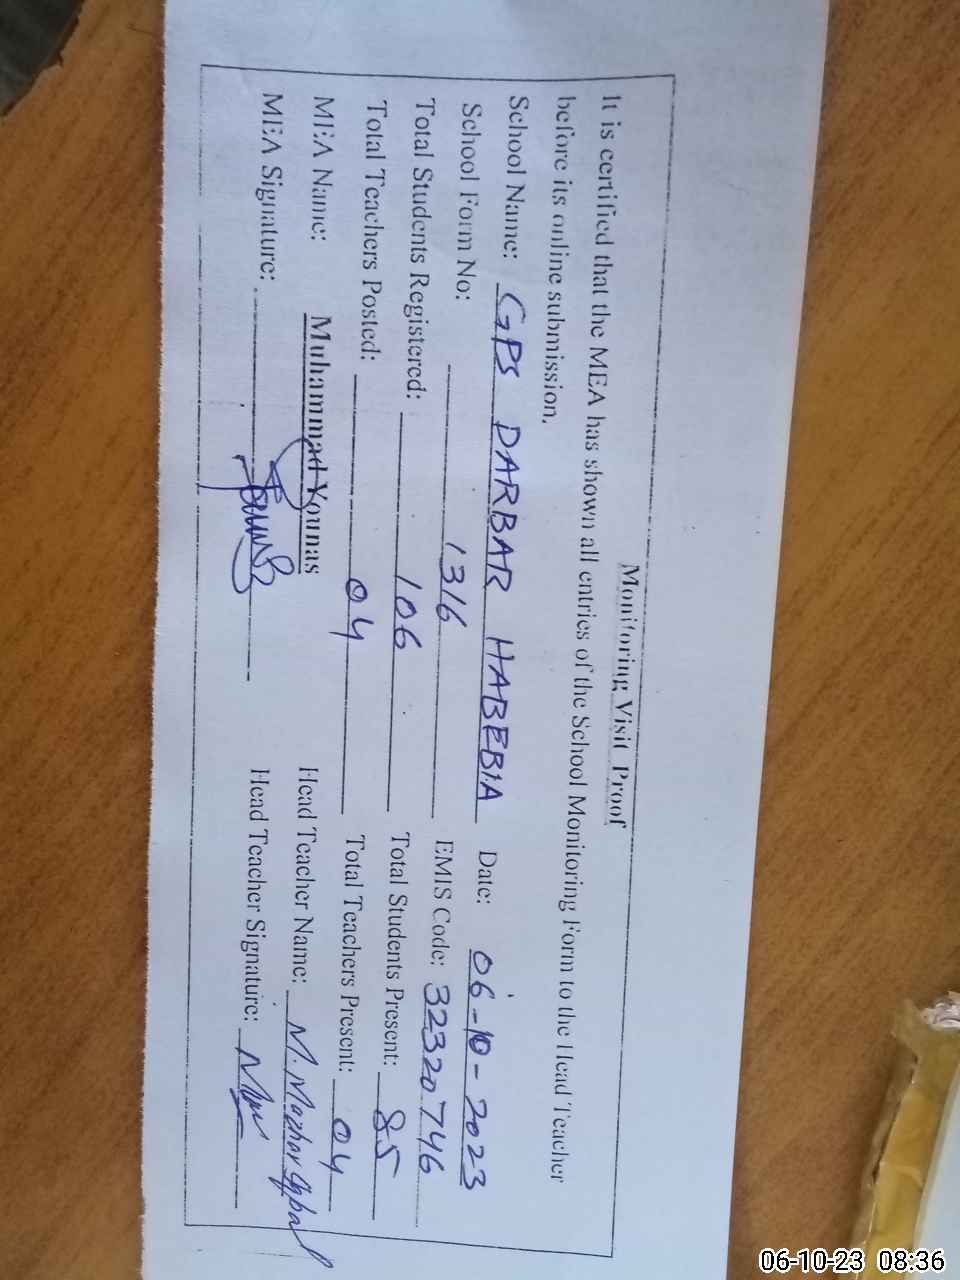 Monitoring Visit Proof
It is certified that the MEA has shown all entries of the School Monitoring Form to the Head Teacher
before its online submission.
School Name: GPS DARBAR HABEBIA Date: 06-10-2023
School Form No: 1316 EMIS Code: 32320746
Total Students Registered: 106 Total Students Present: 85
Total Teachers Posted: 04 Total Teachers Present: 04
MEA Name: Muhammad Younas Head Teacher Name: M. Mazhar Iqbal
MEA Signature: Head Teacher Signature:
06-10-23 08:36